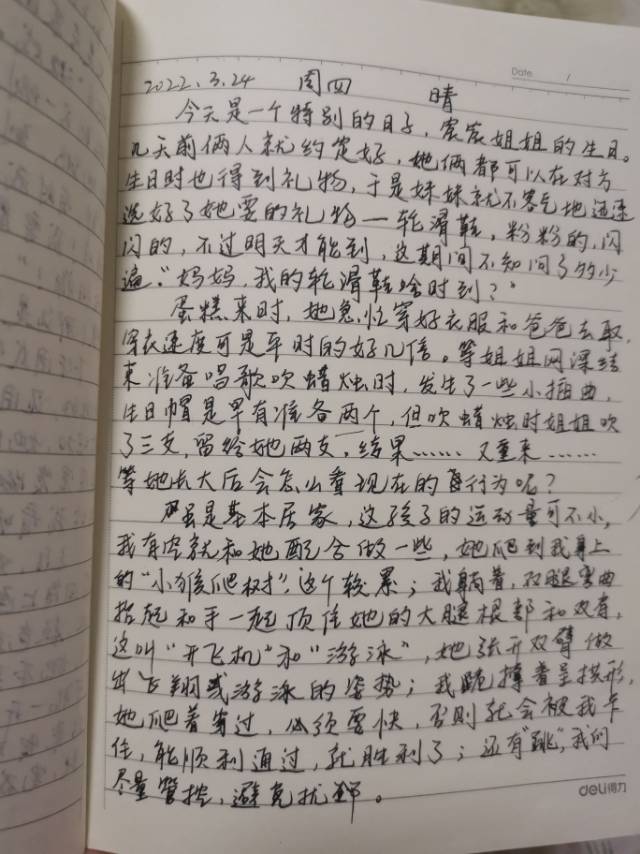 Date: /
2022.3.24 周四 晴
今天是一个特别的日子，宸宸姐姐的生日。
几天前俩人就约定好，她俩都可以在对方
生日时也得到礼物，于是妹妹就不客气地迅速
选好了她要的礼物—轮滑鞋，粉粉的，闪
闪的，不过明天才能到，这期间不知问了多少
遍"妈妈，我的轮滑鞋啥时到？"
蛋糕来时，她急忙穿好衣服和爸爸去取，
穿衣速度可是平时的好几倍。等姐姐网课结
束准备唱歌吹蜡烛时，发生了一些小插曲，
生日帽是早有准备两个，但吹蜡烛时姐姐吹
了三支，留给她两支，结果……又重来……
等她长大后会怎么看现在的行为呢？
虽是基本居家，这孩子的运动量可不小，
我有空就和她配合做一些，她爬到我身上
的"小猴爬树"，这个较累；我躺着，双腿弯曲
抬起和手一起顶住她的大腿根部和双肩，
这叫"开飞机"和"游泳"，她张开双臂做
出飞翔或游泳的姿势；我跪撑着呈拱形，
她爬着穿过，必须要快，否则就会被我卡
住，能顺利通过，就胜利了；还有"跳"，我们
尽量管控，避免扰邻。
deli得力